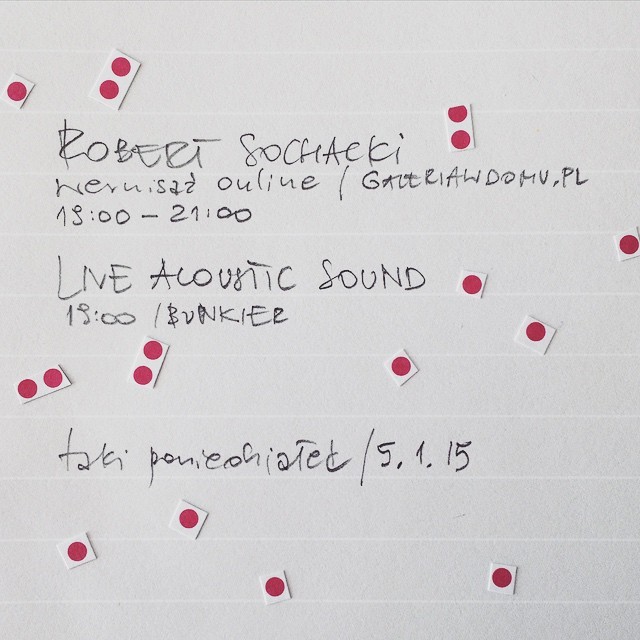 ROBERT SOCHACKI
wernisaż online / GALERIAWDOMU.PL
19:00 – 21:00
LIVE ACOUSTIC SOUND
19:00 / BUNKIER
taki poniedziałek / 5.1.15